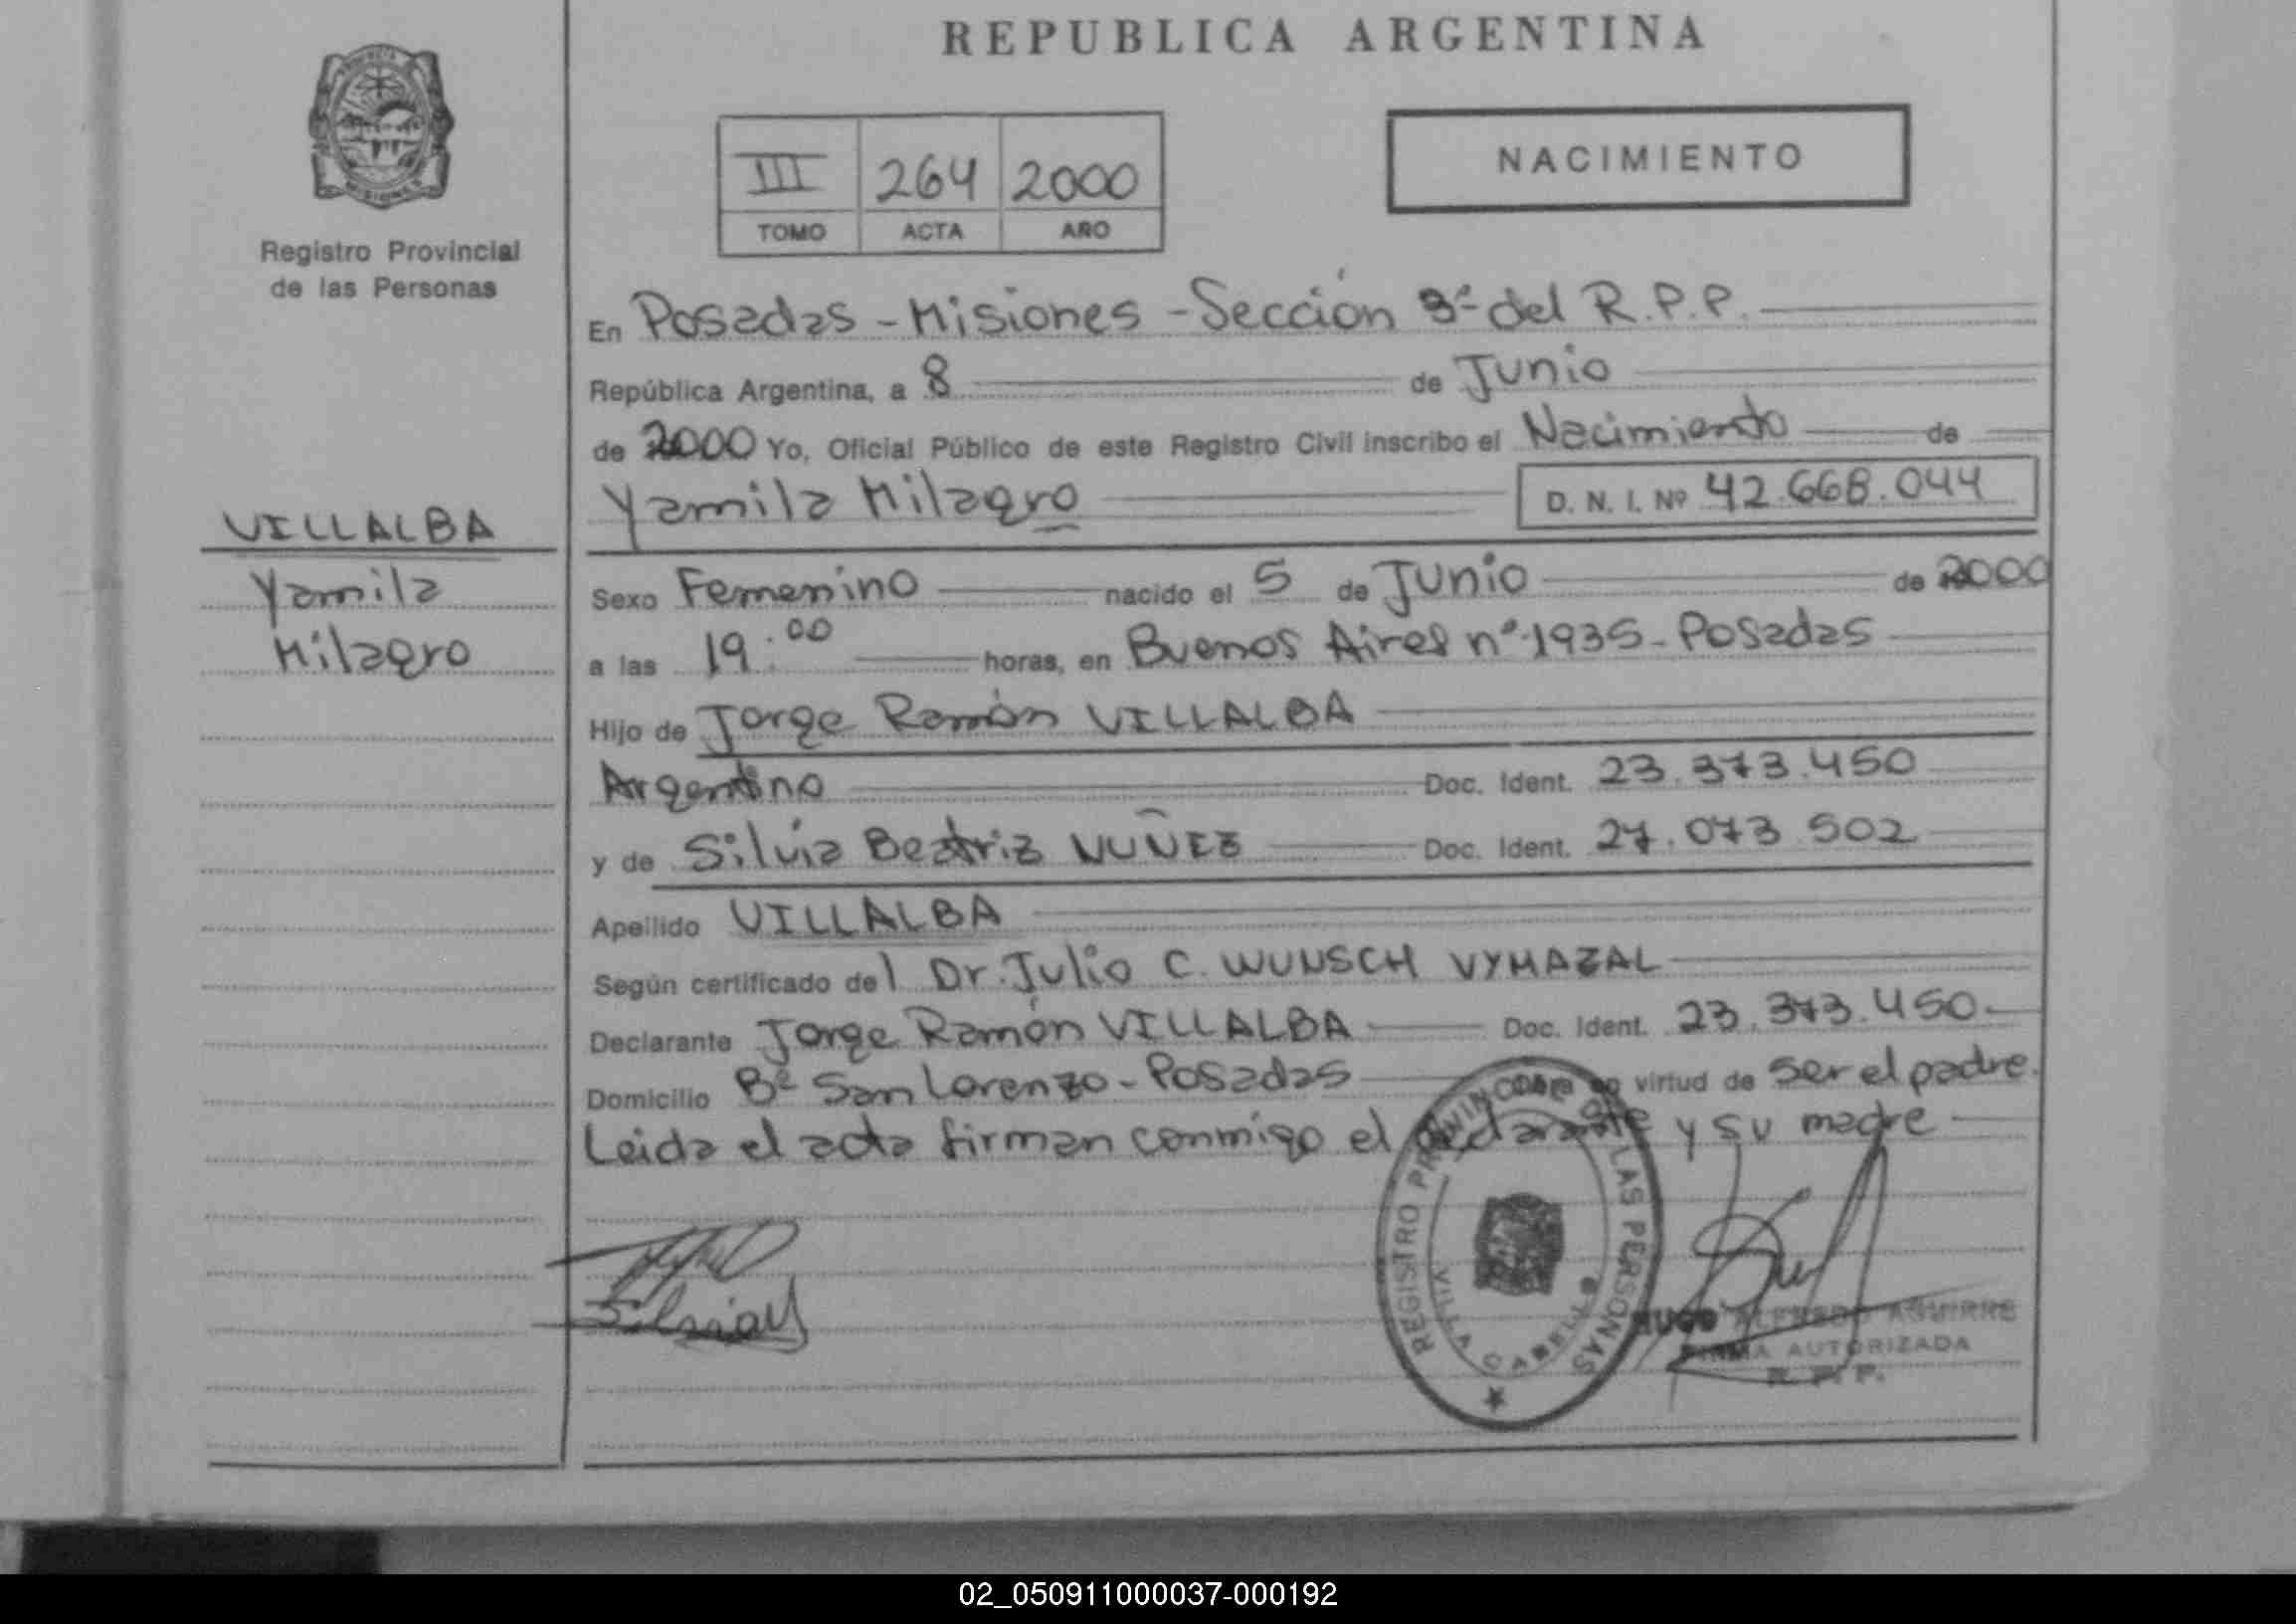 REPUBLICA ARGENTINA
MISIONES
Registro Provincial
de las Personas
III 264 2000
TOMO ACTA AÑO
NACIMIENTO
En Posadas - Misiones - Sección 3ª del R.P.P.
República Argentina, a 8 de Junio
de 2000 Yo, Oficial Público de este Registro Civil inscribo el Nacimiento de
Yamila Milagro D. N. I. Nº 42.668.044
VILLALBA
Yamila
Milagro
Sexo Femenino nacido el 5 de Junio de 2000
a las 19:00 horas, en Buenos Aires nº 1935 - Posadas
Hijo de Jorge Ramón VILLALBA
Argentino Doc. Ident. 23.373.450
y de Silvia Beatriz NUÑEZ Doc. Ident. 27.073.502
Apellido VILLALBA
Según certificado del Dr. Julio C. WUNSCH VYMAZAL
Declarante Jorge Ramón VILLALBA Doc. Ident. 23.373.450
Domicilio Bº San Lorenzo - Posadas virtud de ser el padre.
Leida el acta firman conmigo el declarante y su madre
REGISTRO PROVINCIAL DE LAS PERSONAS
VILLA CABELLO
HUGO ALFREDO AGUIRRE
FIRMA AUTORIZADA
R. P. P.
02_050911000037-000192